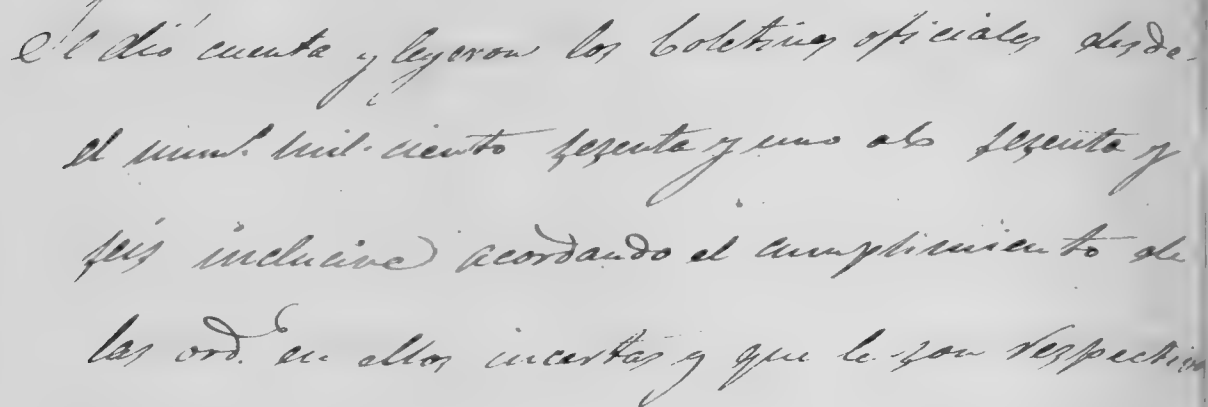 Se dió cuenta y leyeron los boletines oficiales desde
el num.º mil ciento sesenta y uno al sesenta y
seis inclucive acordando el cumplimiento de
las ord.s en ellos incertas y que le son respectiva